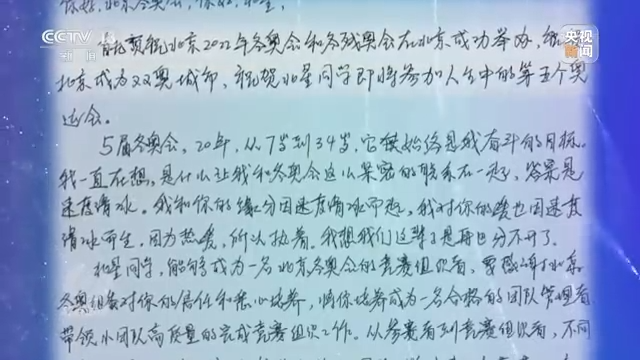 CCTV 13
新闻
央视新闻
你好,北京冬奥会,你好,北星,
首先祝贺北京2022年冬奥会和冬残奥会在北京成功举办,
北京成为双奥城市,祝贺北星同学即将参加人生中的第五个奥
运会。
5届冬奥会,20年,从7岁到34岁,它始终是我奋斗的目标。
我一直在想,是什么让我和冬奥会这么紧密的联系在一起,答案是
速度滑冰。我和你的缘分因速度滑冰而起,我对你的爱也因速度
滑冰而生,因为热爱,所以执着。我想我们这辈子是再也分不开了。
北星同学,能够成为一名北京冬奥会的竞赛组织者,要感谢北京
冬奥组委对你的信任和悉心培养,将你培养成为一名合格的团队管理者,
带领小团队高质量的完成竞赛组织工作。从参赛者到竞赛组织者,不同